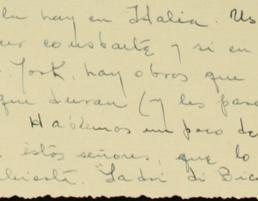 la hay en Italia. Us
constante y si en
York, hay obras que
que duran (y les pasa
Hablemos un poco de
estos señores, que lo
Ladri di Bic